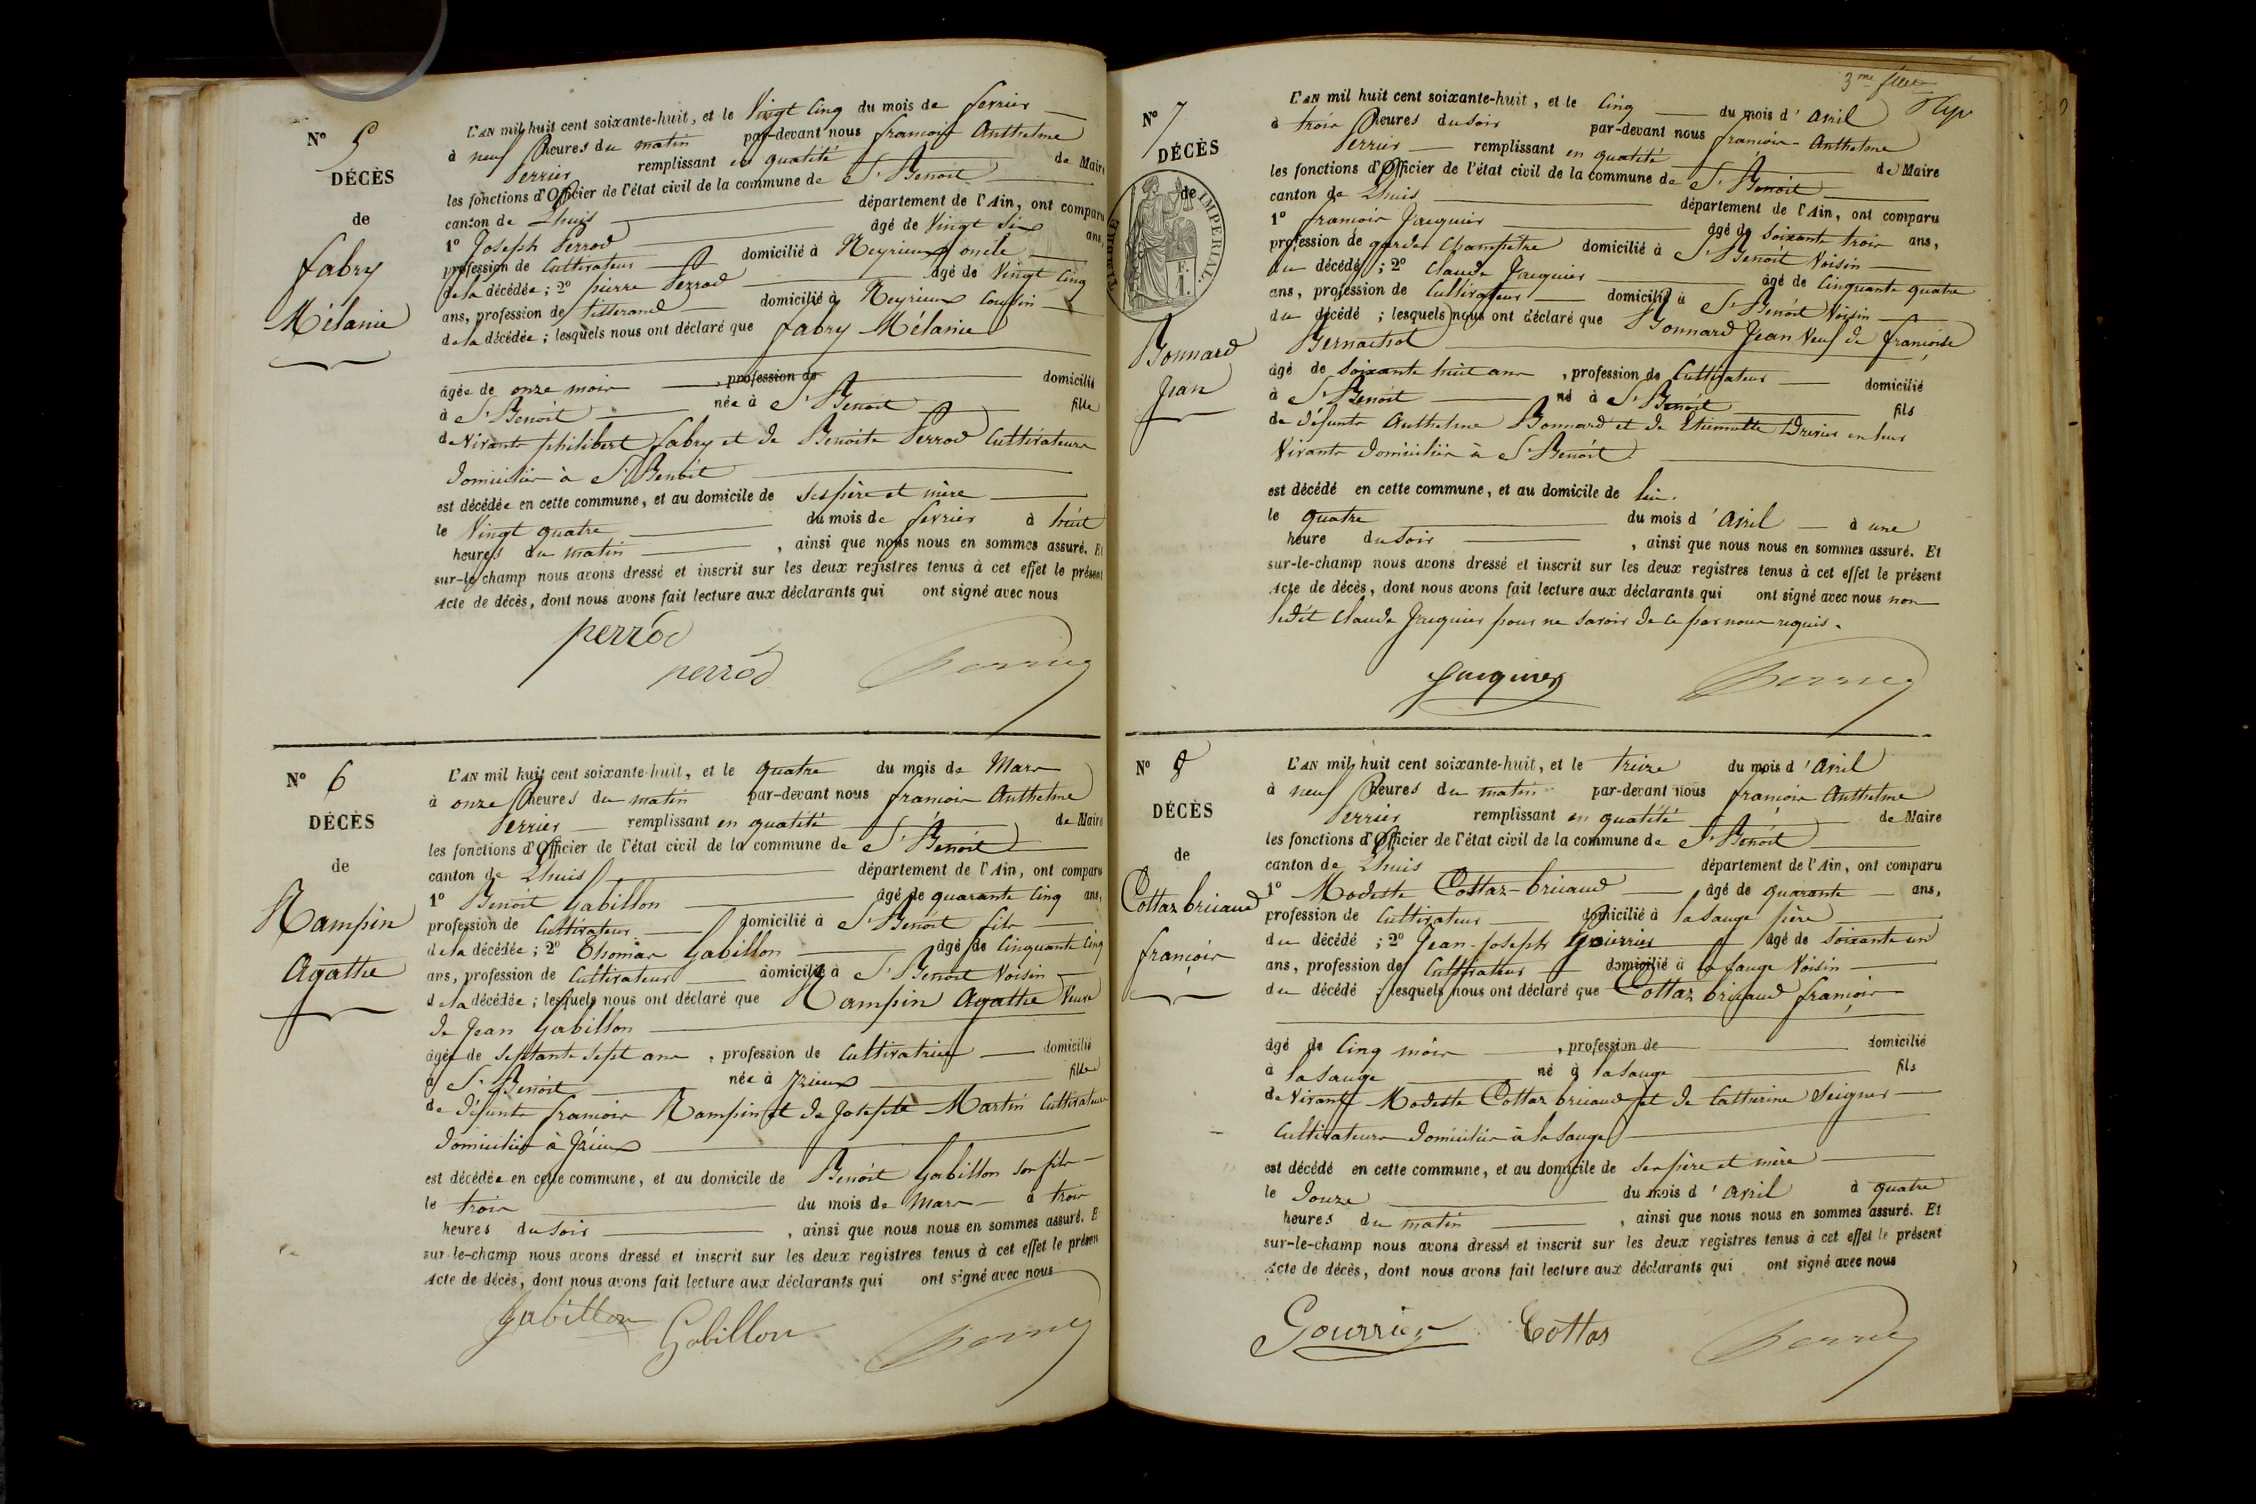 N° 5
DÉCÈS
de
fabry
Mélanie
L'AN mil huit cent soixante-huit, et le Vingt Cinq du mois de fevrier
à neuf heures du matin par-devant nous françois Anthelme
Perrier remplissant en qualité de Maire
les fonctions d'Officier de l'état civil de la commune de St Benoit
canton de Lhuis département de l'Ain, ont comparu
1° Joseph Perrod âgé de Vingt Six ans,
profession de Cultivateur domicilié à Neyrieux oncle
de la décédée; 2° pierre Perrod âgé de Vingt Cinq
ans, profession de tisserand domicilié à Neyrieux Cousin
de la décédée; lesquels nous ont déclaré que fabry Mélanie
âgée de onze mois, profession de domicilié
à St Benoit née à St Benoit fille
de Vivants philibert fabry et de Benoite Perrod Cultivateurs
domiciliés à St Benoit
est décédée en cette commune, et au domicile de ses père et mère
le Vingt quatre du mois de fevrier à huit
heures du matin, ainsi que nous nous en sommes assuré. Et
sur-le-champ nous avons dressé et inscrit sur les deux registres tenus à cet effet le présent
Acte de décès, dont nous avons fait lecture aux déclarants qui ont signé avec nous
perrod
perrod
N° 6
DÉCÈS
de
Rampin
Agathe
L'AN mil huit cent soixante-huit, et le quatre du mois de Mars
à onze heures du matin par-devant nous françois Anthelme
Perrier remplissant en qualité de Maire
les fonctions d'Officier de l'état civil de la commune de St Benoit
canton de Lhuis département de l'Ain, ont comparu
1° Benoit Gabillon âgé de quarante Cinq ans,
profession de Cultivateur domicilié à St Benoit fils
de la décédée; 2° Thomas Gabillon âgé de Cinquante Cinq
ans, profession de Cultivateur domicilié à St Benoit Voisin
de la décédée; lesquels nous ont déclaré que Rampin Agathe Veuve
de Jean Gabillon
âgée de septante sept ans, profession de Cultivatrice domicilié
à St Benoit née à fille
de défunts françois Rampin et de Josephte Martin Cultivateurs
domiciliés à
est décédée en cette commune, et au domicile de Benoit Gabillon son fils
le trois du mois de Mars à trois
heures du soir, ainsi que nous nous en sommes assuré. E
sur-le-champ nous avons dressé et inscrit sur les deux registres tenus à cet effet le présen
Acte de décès, dont nous avons fait lecture aux déclarants qui ont signé avec nous
gabillon
Gobillon
3me
N° 7
DÉCÈS
de
TIMBRE IMPÉRIAL.
F.
1.
Bonnard
Jean
L'AN mil huit cent soixante-huit, et le Cinq du mois d'Avril
à trois heures du soir par-devant nous françois Anthelme
Perrier remplissant en qualité de Maire
les fonctions d'Officier de l'état civil de la commune de St Benoit
canton de Lhuis département de l'Ain, ont comparu
1° françois Jacquier âgé de soixante trois ans,
profession de garde Champêtre domicilié à St Benoit Voisin
du décédé; 2° Claude Jacquier âgé de Cinquante quatre
ans, profession de Cultivateur domicilié à St Benoit Voisin
du décédé; lesquels nous ont déclaré que Bonnard Jean Veuf de françoise
âgé de soixante huit ans, profession de Cultivateur domicilié
à St Benoit né à St Benoit fils
de défunts Anthelme Bonnard et de Etiennette en leur
Vivants domiciliés à St Benoit
est décédé en cette commune, et au domicile de lui.
le quatre du mois d'Avril à une
heure du soir, ainsi que nous nous en sommes assuré. Et
sur-le-champ nous avons dressé et inscrit sur les deux registres tenus à cet effet le présent
Acte de décès, dont nous avons fait lecture aux déclarants qui ont signé avec nous non
ledit Claude Jacquier pour ne savoir de ce par nous requis.
Jacquier
N° 8
DÉCÈS
de
Cottaz bricaud
françois
L'AN mil huit cent soixante-huit, et le treize du mois d'Avril
à neuf heures du matin par-devant nous françois Anthelme
Perrier remplissant en qualité de Maire
les fonctions d'Officier de l'état civil de la commune de St Benoit
canton de Lhuis département de l'Ain, ont comparu
1° Modeste Cottaz-bricaud âgé de quarante ans,
profession de Cultivateur domicilié à la Sauge père
du décédé; 2° Jean-Joseph Gourrier âgé de soixante un
ans, profession de Cultivateur domicilié à la Sauge Voisin
du décédé; lesquels nous ont déclaré que Cottaz bricaud françois
âgé de Cinq mois, profession de domicilié
à la Sauge né à la Sauge fils
de Vivants Modeste Cottaz bricaud et de Catherine Seigner
Cultivateurs domiciliés à la Sauge
est décédé en cette commune, et au domicile de ses père et mère
le douze du mois d'Avril à quatre
heures du matin, ainsi que nous nous en sommes assuré. Et
sur-le-champ nous avons dressé et inscrit sur les deux registres tenus à cet effet le présent
Acte de décès, dont nous avons fait lecture aux déclarants qui ont signé avec nous
Gourrier
Cottas